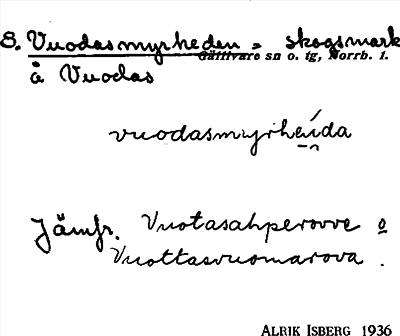 8. Vuodasmyrheden = skogsmark
Gällivare sn o. tg, Norrb. l.
å Vuodas
vuodasmyrhèi̯da
Jämfr. Vuotasahperovve o
Vuottasvuomarova.
ALRIK ISBERG 1936